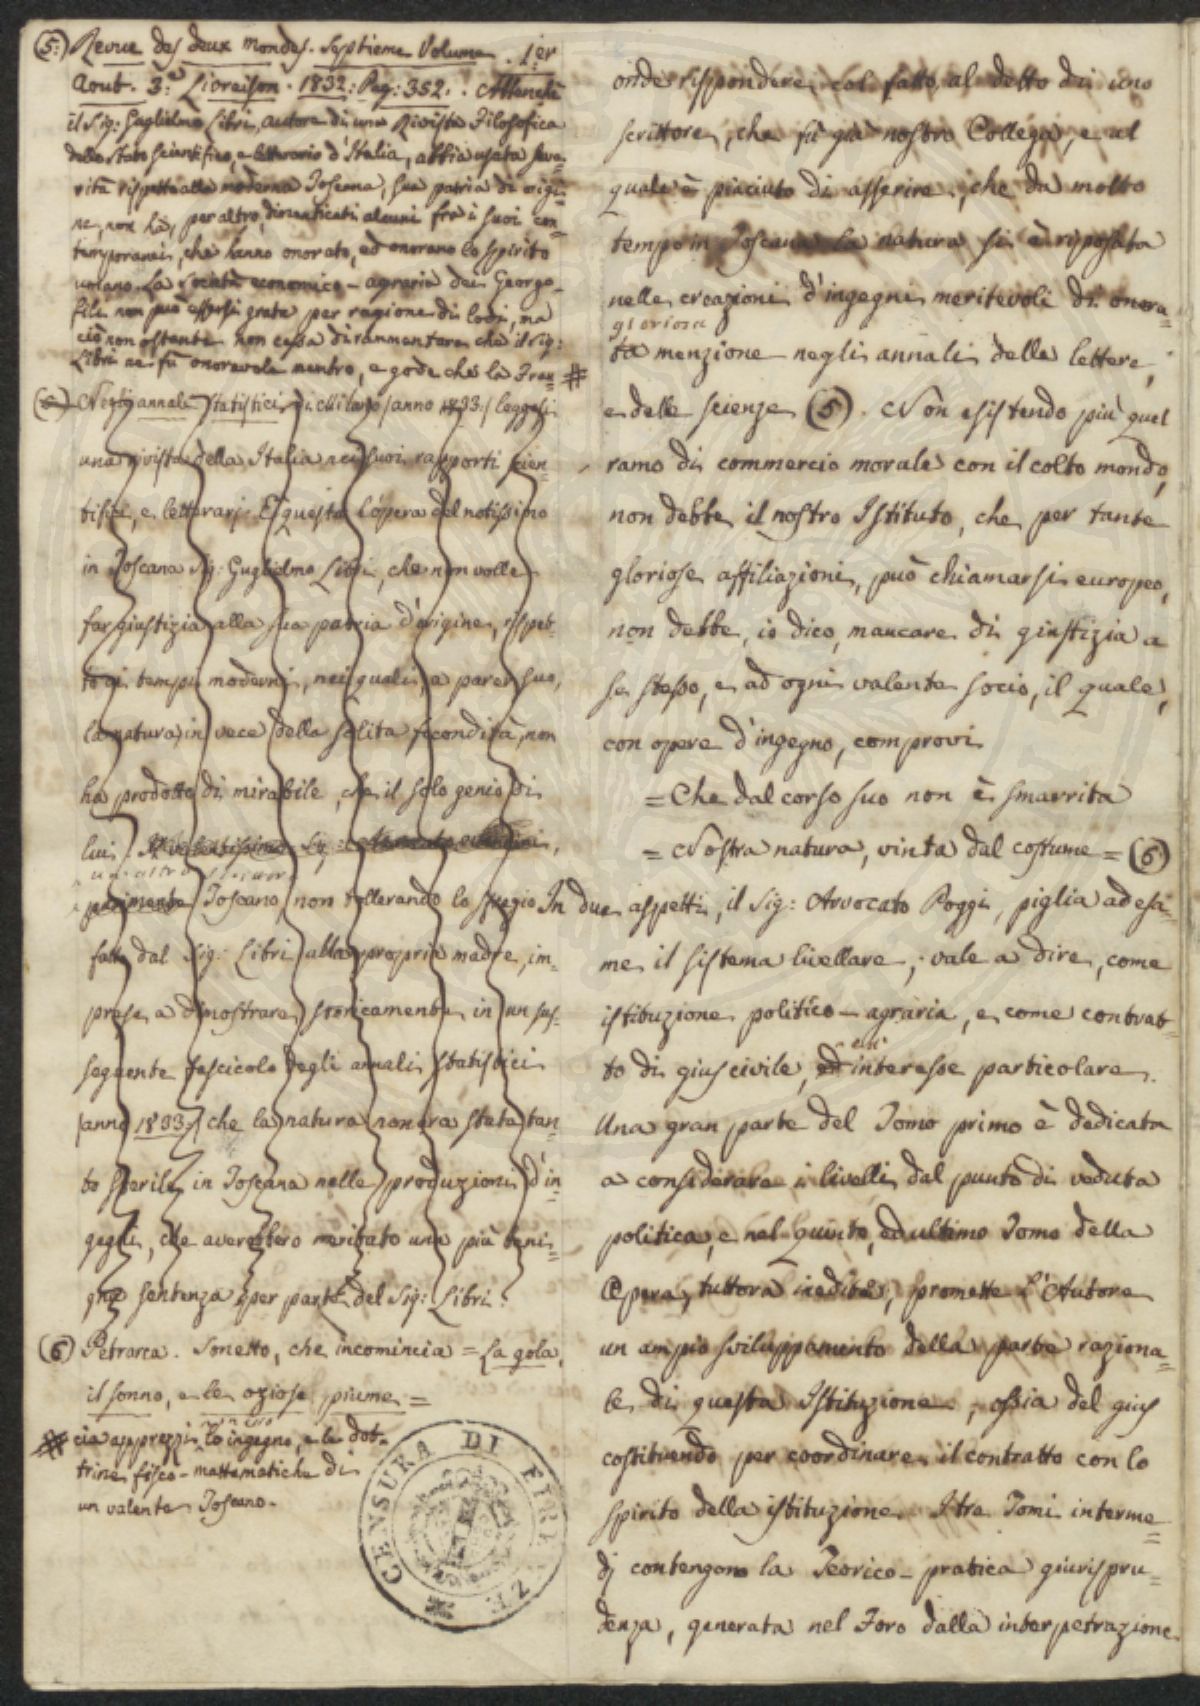 (5:) Revue des deux mondes. Septieme Volume. 1.er
Aout. 3.e Livraison. 1832: Pag: 352. Altenchè
il Sig: Guglielmo Libri, autore di una Rivista Filosofica
dello Stato scientifico, e letterario d'Italia, abbia usata seve=
rità rispetto alla moderna Toscana, sua patria di origi=
ne, non hà, per altro, dimenticati alcuni frà i suoi con=
temporanei, che hanno onorato, ed onorano lo spirito
umano. La Società economico-agraria dei Georgo=
fili non può essersi grata per ragione di lodi, ma
ciò non ostante non cessa di rammentare che il Sig:
Libri ne fù onorevole membro, e gode che la Fran= #
(6) Negli annali Statistici di Milano (anno 1833.) leggesi
una rivista della Italia nei suoi rapporti scien=
tifici, e letterarj. È questa l'opera del notissimo
in Toscana Sig: Guglielmo Libri, che non volle
far giustizia alla sua patria d'origine, rispet=
to ai tempi moderni, nei quali, a parer suo,
la natura, in vece della solita fecondità, non
ha prodotto di mirabile, che il solo genio di
lui. Il valentissimo Sig:
un altro
parimente Toscano, non tollerando lo sfregio
fatto dal Sig: Libri alla propria madre, im=
prese a dimostrare storicamente in un sus=
seguente fascicolo degli annali statistici
(anno 1833.) che la natura non era stata tan=
to sterile in Toscana nelle produzioni d'in=
gegni, che averebbero meritato una più beni=
gna sentenza per parte del Sig: Libri.
(6) Petrarca. Sonetto, che incomincia = La gola,
il sonno, e le oziose piume =
# cia apprezzi lo ingegno, e le dot=
trine fisico-mattematiche di
un valente Toscano.
CENSURA DI FIRENZE
onde rispondere col fatto al detto di uno
scrittore, che fù già nostro Collega, e al
quale è piaciuto di asserire, che da molto
tempo in Toscana la natura si è risposata
nelle creazioni d'ingegni meritevoli di onora=
gloriosa
ta menzione negli annali delle lettere,
e delle scienze (5). Non esistendo più quel
ramo di commercio morale con il colto mondo,
non debbe il nostro Istituto, che per tante
gloriose affiliazioni, può chiamarsi europeo,
non debbe, io dico, mancare di giustizia a
se stesso, e ad ogni valente socio, il quale,
con opere d'ingegno, comprovi
= Che dal corso suo non è smarrita
= Nostra natura, vinta dal costume = (6)
In due aspetti, il Sig: Avvocato Poggi, piglia ad esa=
me il sistema livellare; vale a dire, come
istituzione politico-agraria, e come contrat=
to di gius civile, ed interesse particolare.
Una gran parte del Tomo primo è dedicata
a considerare i livelli dal punto di veduta
politica, e nel quinto, ed ultimo Tomo della
Opera, tuttora inedita, promette l'Autore
un ampio sviluppamento della parte raziona=
le di questa Istituzione, ossia del gius
costituendo per coordinare il contratto con lo
spirito della istituzione. I tre Tomi interme=
dj contengono la Teorico-pratica giurispru=
denza, generata nel Foro dalla interpetrazione